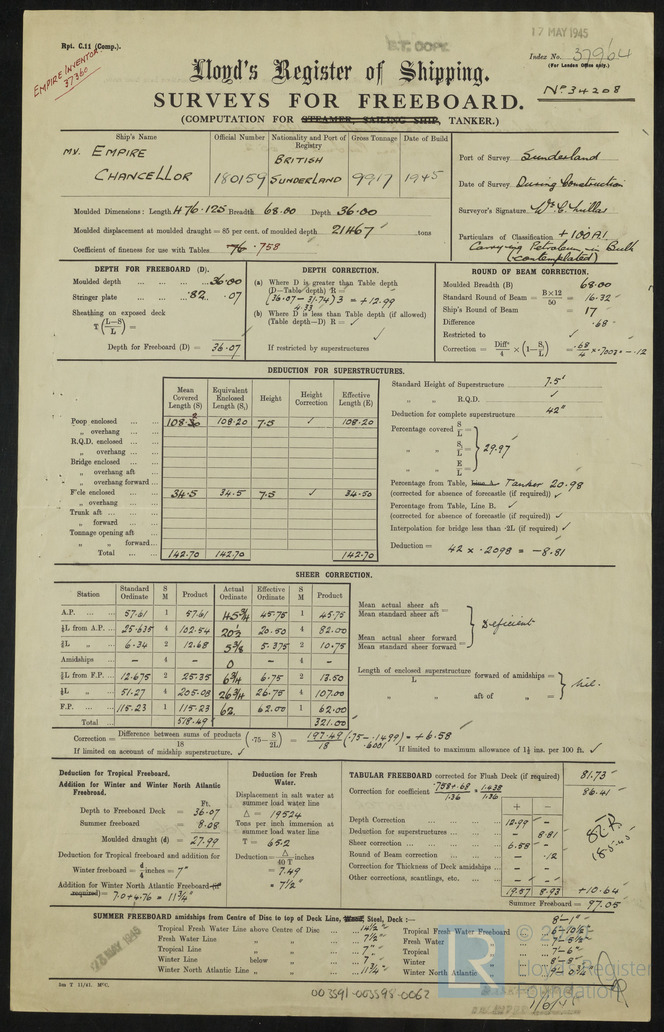 Rpt. C.11 (Comp.).
EMPIRE INVENTOR
37360
17 MAY 1945
Index No. 37964
(For London Office only.)
No 34208
Lloyd's Register of Shipping.
SURVEYS FOR FREEBOARD.
(COMPUTATION FOR STEAMER, SAILING SHIP, TANKER.)
Ship's Name
Official Number
Nationality and Port of Registry
Gross Tonnage
Date of Build
MV. EMPIRE CHANCELLOR
180159
BRITISH SUNDERLAND
9917
1945
Port of Survey Sunderland
Date of Survey During Construction
Surveyor's Signature
Particulars of Classification +100A1
Carrying Petroleum in Bulk
(contemplated)
Moulded Dimensions: Length 476.125 Breadth 68.00 Depth 36.00
Moulded displacement at moulded draught = 85 per cent. of moulded depth 21467 tons
Coefficient of fineness for use with Tables .76 .758
DEPTH FOR FREEBOARD (D).
Moulded depth ... 36.00
Stringer plate ... .82 .07
Sheathing on exposed deck
T(L-S/L) =
Depth for Freeboard (D) = 36.07
DEPTH CORRECTION.
(a) Where D is greater than Table depth
(D—Table depth) R =
(36.07 - 31.74) 3 = +12.99
4.33
(b) Where D is less than Table depth (if allowed)
(Table depth—D) R = ✓
If restricted by superstructures
ROUND OF BEAM CORRECTION.
Moulded Breadth (B) 68.00
Standard Round of Beam = B×12/50 = 16.32
Ship's Round of Beam = 17
Difference .68
Restricted to ✓
Correction = Diff/4 × (1—S₁/L) = .68/4 × .7003 = -.12
DEDUCTION FOR SUPERSTRUCTURES.
Mean Covered Length (S)
Equivalent Enclosed Length (S₁)
Height
Height Correction
Effective Length (E)
Poop enclosed ... 108.20 108.20 7.5 ✓ 108.20
„ overhang ...
R.Q.D. enclosed ...
„ overhang ...
Bridge enclosed ...
„ overhang aft
„ overhang forward ...
F'cle enclosed ... 34.5 34.5 7.5 ✓ 34.50
„ overhang ...
Trunk aft ...
„ forward ...
Tonnage opening aft
„ „ forward ...
Total ... 142.70 142.70 142.70
Standard Height of Superstructure 7.5'
„ „ R.Q.D. ✓
Deduction for complete superstructure 42"
Percentage covered S/L =
„ „ S₁/L = } 29.97
„ „ E/L =
Percentage from Table, Line A. Tanker 20.98
(corrected for absence of forecastle (if required)) ✓
Percentage from Table, Line B. ✓
(corrected for absence of forecastle (if required)) ✓
Interpolation for bridge less than ·2L (if required) ✓
Deduction = 42 × .2098 = -8.81
SHEER CORRECTION.
Station
Standard Ordinate
S M
Product
Actual Ordinate
Effective Ordinate
S M
Product
A.P. ... 57.61 1 57.61 45¾ 45.75 1 45.75
⅙L from A.P. ... 25.635 4 102.54 20½ 20.50 4 82.00
⅓L „ 6.34 2 12.68 5⅜ 5.375 2 10.75
Amidships ... – 4 – 0 – 4 –
⅓L from F.P. ... 12.675 2 25.35 6¾ 6.75 2 13.50
⅙L „ 51.27 4 205.08 26¾ 26.75 4 107.00
F.P. ... 115.23 1 115.23 62. 62.00 1 62.00
Total ... 518.49 321.00
Mean actual sheer aft / Mean standard sheer aft =
Mean actual sheer forward / Mean standard sheer forward =
} Deficient
Length of enclosed superstructure / L forward of amidships =
„ „ aft of „ =
} Nil.
Correction = Difference between sums of products / 18 (·75—S/2L) = 197.49/18 (.75 - .1499) = +6.58
.6001
If limited on account of midship superstructure. ✓
If limited to maximum allowance of 1½ ins. per 100 ft. ✓
Deduction for Tropical Freeboard.
Addition for Winter and Winter North Atlantic Freeboard.
Ft.
Depth to Freeboard Deck = 36.07
Summer freeboard = 8.08
Moulded draught (d) = 27.99
Deduction for Tropical freeboard and addition for
Winter freeboard = d/4 inches = 7"
Addition for Winter North Atlantic Freeboard (if required) = 7.0 + 4.76 = 11¾"
Deduction for Fresh Water.
Displacement in salt water at summer load water line
Δ = 19524
Tons per inch immersion at summer load water line
T = 65.2
Deduction = Δ/40 T inches
= 7.49
= 7½"
TABULAR FREEBOARD corrected for Flush Deck (if required) 81.73
Correction for coefficient .758+.68/1.36 = 1.438/1.36 86.41
+ –
Depth Correction ... 12.99 –
Deduction for superstructures ... – 8.81
Sheer correction ... 6.58 –
Round of Beam correction ... – .12
Correction for Thickness of Deck amidships ... – –
Other corrections, scantlings, etc. ... – –
19.57 8.93 +10.64
Summer Freeboard = 97.05
18.5.45
SUMMER FREEBOARD amidships from Centre of Disc to top of Deck Line, Wood, Steel, Deck :— 8'-1"
Tropical Fresh Water Line above Centre of Disc ... 14½"
Fresh Water Line „ „ ... 7½"
Tropical Line „ „ ... 7"
Winter Line below „ ... 7"
Winter North Atlantic Line „ „ ... 11¾"
Tropical Fresh Water Freeboard ... 6'-10½"
Fresh Water „ 7'-5½"
Tropical „ 7'-6"
Winter „ 8'-8"
Winter North Atlantic „ 9'-0¾"
23 MAY 1945
LR
Lloyd's Register
Foundation
003591-003598-0062
1/6/45